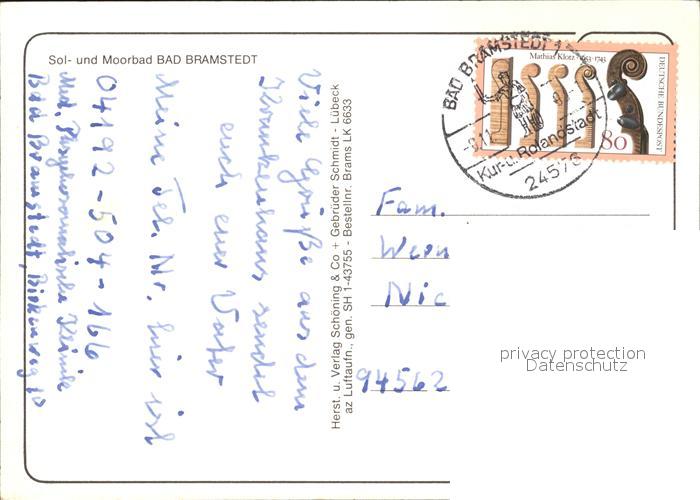 Sol- und Moorbad BAD BRAMSTEDT
Viele Grüße aus dem
Krankenhaus sendet
euch euer Vater
Meine Tel. Nr. hier ist
04192-504-166
Med. Psychosomatische Klinik
Bad Bramstedt, Birkenweg 10
Herst. u. Verlag Schöning & Co + Gebrüder Schmidt - Lübeck
az Luftaufn., gen. SH 1-43755 - Bestellnr. Brams LK 6633
BAD BRAMSTEDT 1
Kur- u. Rolandstadt
24576
Mathias Klotz · 1653-1743
DEUTSCHE BUNDESPOST
80
Fam.
Wern
Nic
94562
privacy protection
Datenschutz